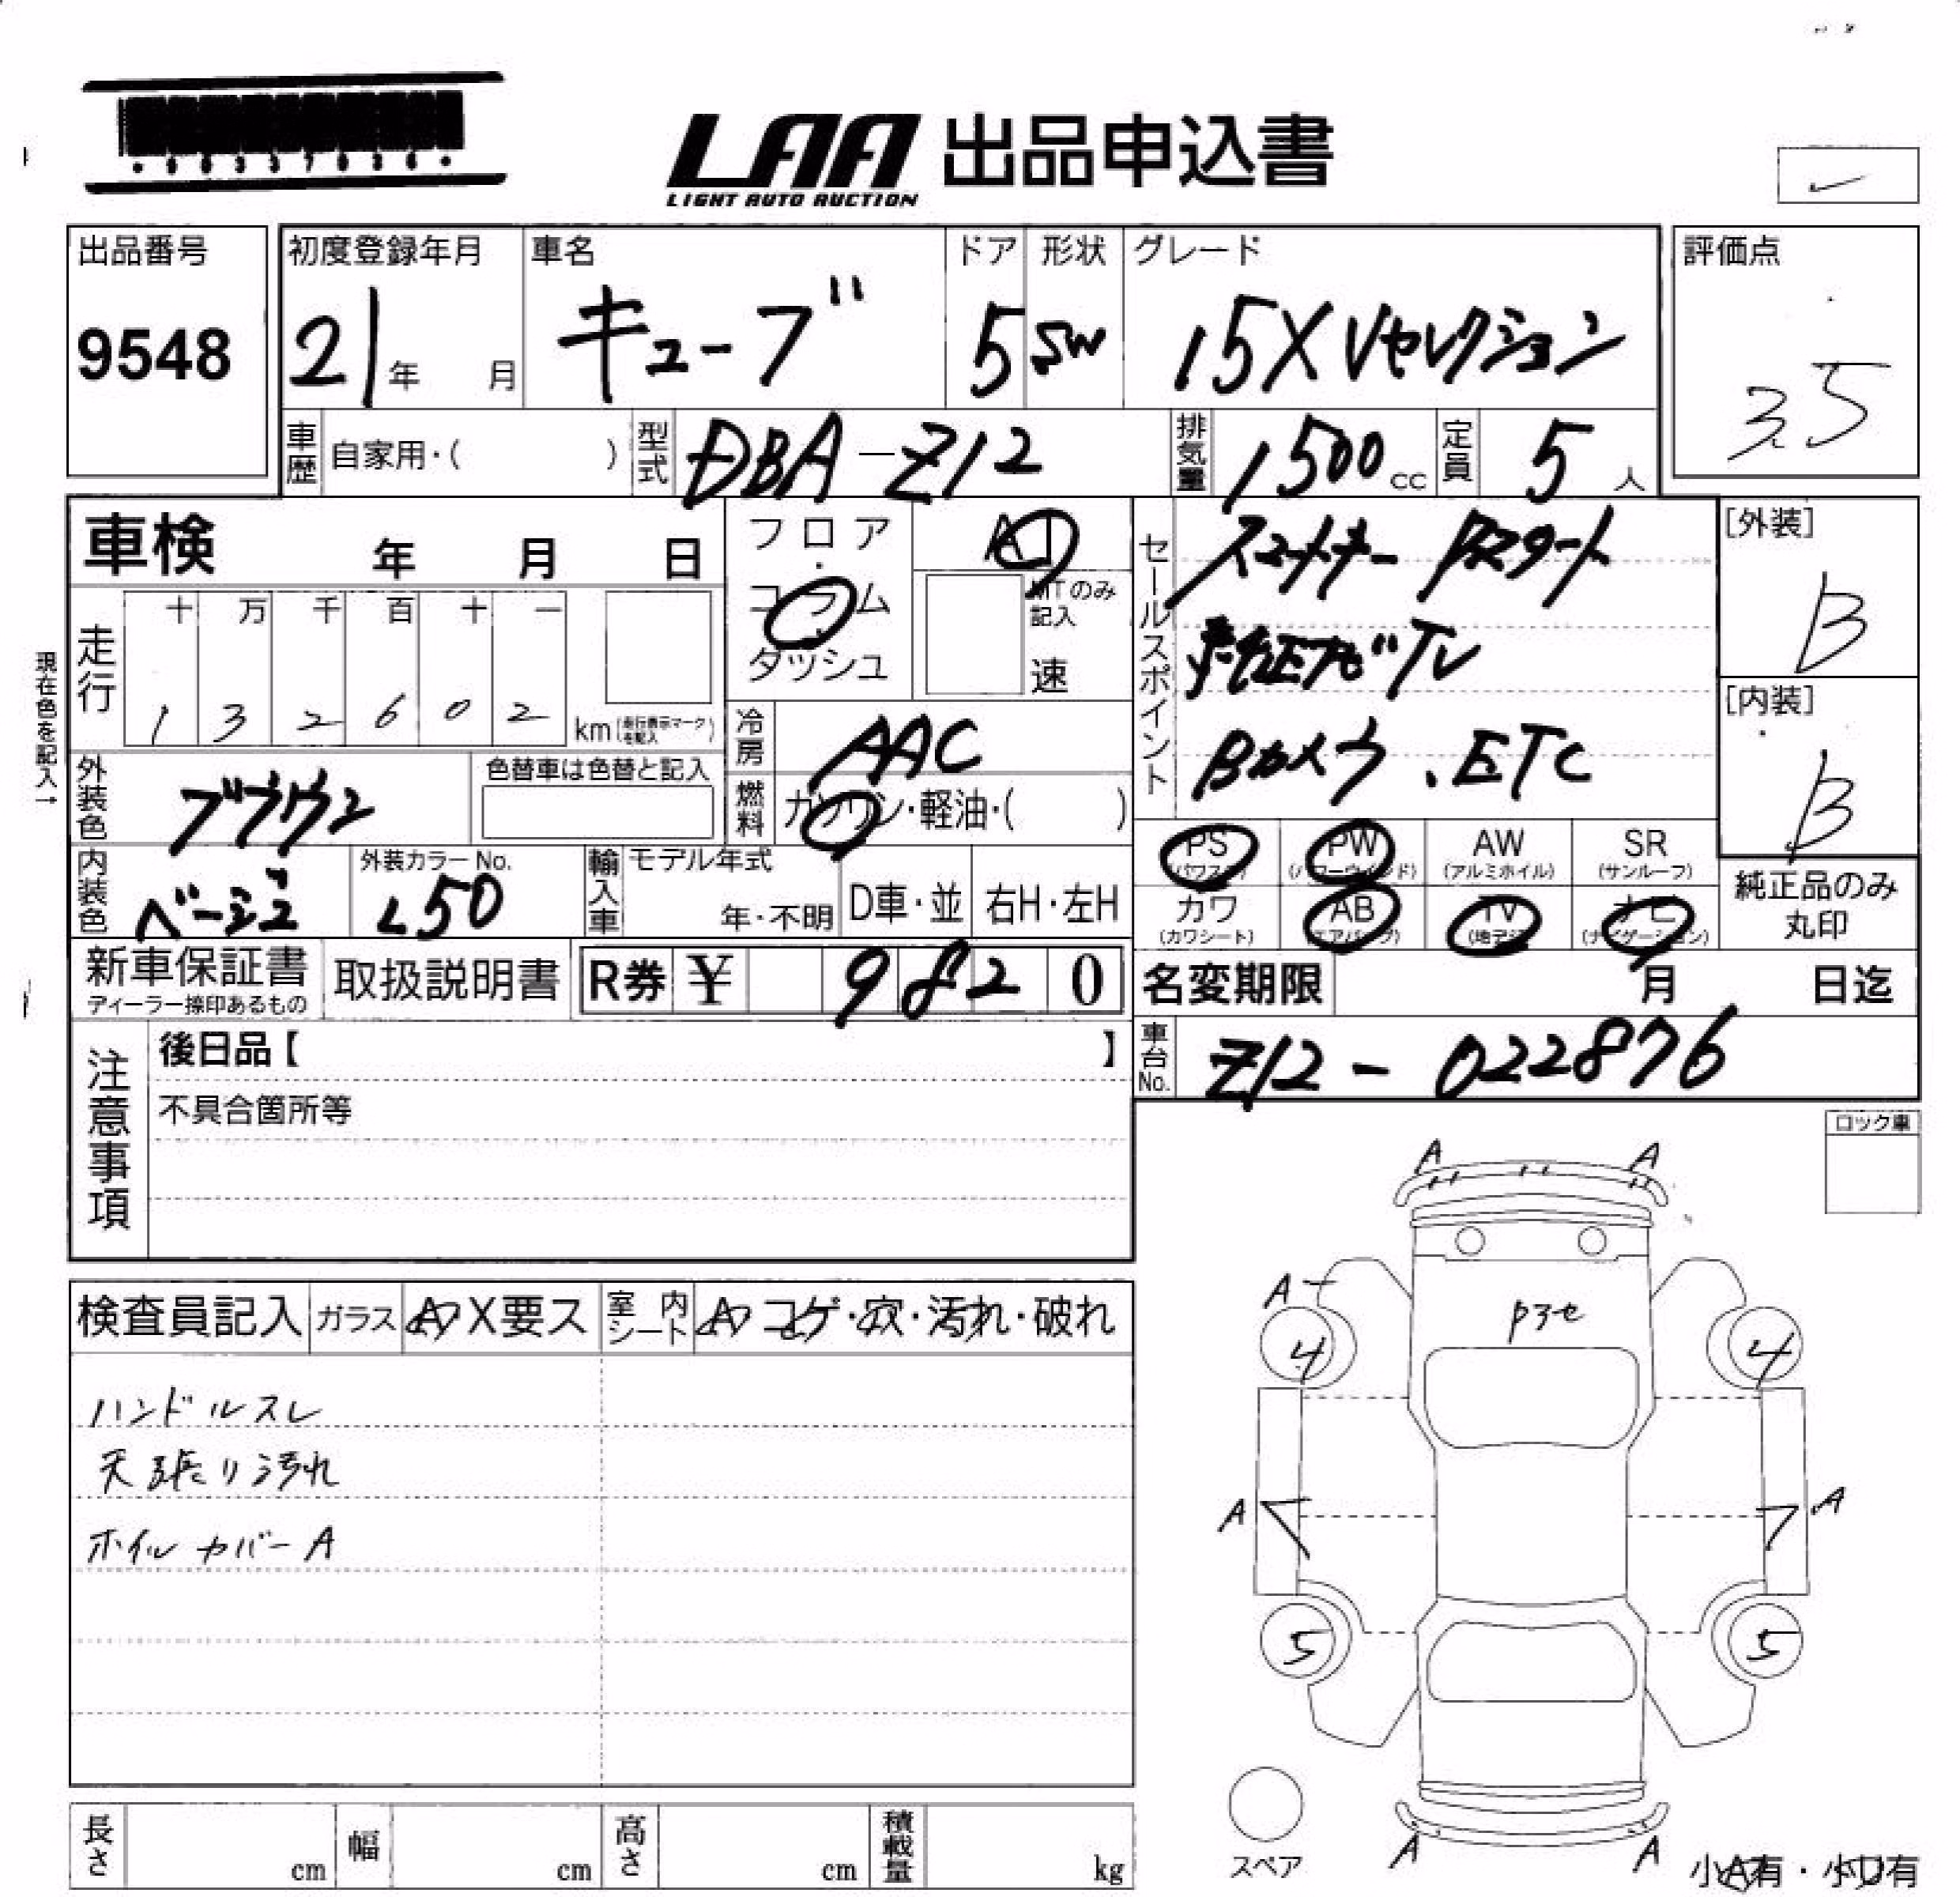 LAA 出品申込書
LIGHT AUTO AUCTION
出品番号
9548
初度登録年月
21年 月
車名
キューブ
ドア
5
形状
SW
グレード
15X Vセレクション
評価点
3.5
車歴 自家用・( )
型式 DBA-Z12
排気量 1500cc
定員 5人
車検 年 月 日
フロア・コラム・ダッシュ
AT
MTのみ記入
速
走行
十 万 千 百 十 一
1 3 2 6 0 2 km (走行表示マークを記入)
現在色を記入→
外装色 ブラウン
色替車は色替と記入
冷房 AAC
燃料 ガソリン・軽油・( )
内装色 ベージュ
外装カラーNo.
L50
輸入車
モデル年式
年・不明
D車・並
右H・左H
セールスポイント
スマートキー Pスタート
純正ナビTV
Bカメラ、ETC
[外装]
B
[内装]
B
PS (パワステ)
PW (パワーウィンド)
AW (アルミホイル)
SR (サンルーフ)
カワ (カワシート)
AB (エアバック)
TV (地デジ)
ナビ (ナビゲーション)
純正品のみ丸印
新車保証書
ディーラー捺印あるもの
取扱説明書
R券 ¥ 9 8 2 0
名変期限 月 日迄
車台No. Z12-022876
注意事項
後日品【 】
不具合箇所等
ロック車
検査員記入
ガラス A・X要ス
室内シート A・コゲ・穴・汚れ・破れ
ハンドルスレ
天張り汚れ
ホイルカバーA
A A
A
4 4
A A
5 5
スペア
A A
小A有・小U有
長さ cm
幅 cm
高さ cm
積載量 kg